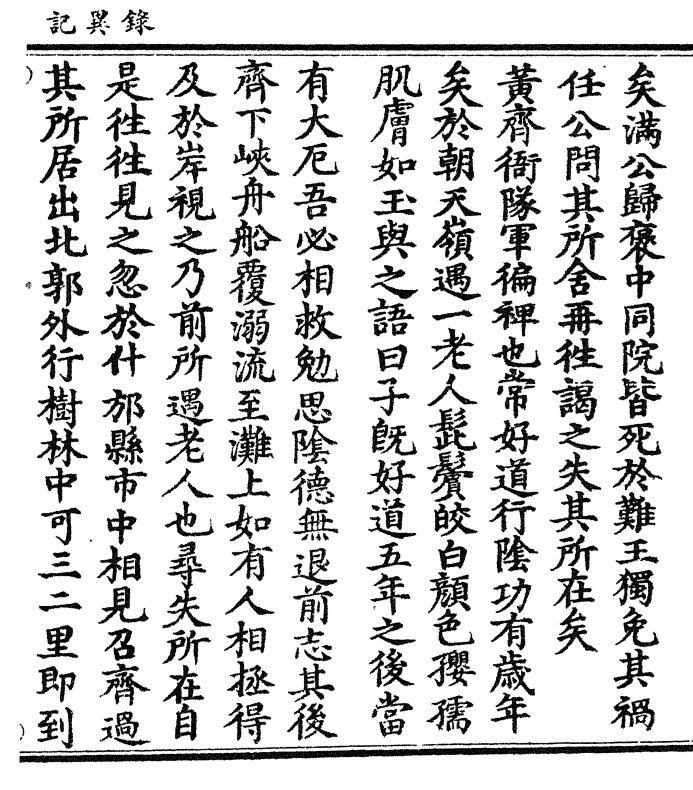 錄異記
矣滿公歸褒中同院皆死於難王獨免其禍
任公問其所舍再徃謁之失其所在矣
黃齊衙隊軍徧裨也常好道行隂功有歳年
矣於朝天嶺遇一老人髭鬢皎白顔色孾孺
肌膚如玉與之語曰子旣好道五年之後當
有大厄吾必相救勉思隂德無退前志其後
齊下峽舟船覆溺流至灘上如有人相拯得
及於岸視之乃前所遇老人也尋失所在自
是徃徃見之忽於什邡縣市中相見召齊過
其所居出北郭外行樹林中可三二里即到